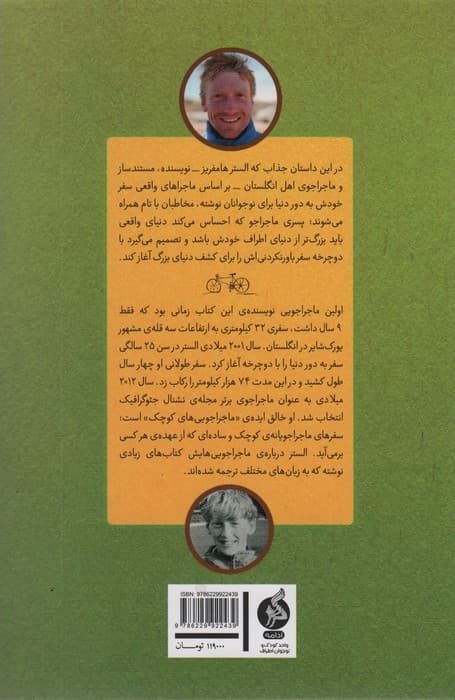 در این داستان جذاب که الستر هامفریز ــ نویسنده، مستندساز
و ماجراجوی اهل انگلستان ــ بر اساس ماجراهای واقعی سفر
خودش به دور دنیا برای نوجوانان نوشته، مخاطبان با تام همراه
می‌شوند؛ پسری ماجراجو که احساس می‌کند دنیای واقعی
باید بزرگ‌تر از دنیای اطراف خودش باشد و تصمیم می‌گیرد با
دوچرخه سفر باورنکردنی‌اش را برای کشف دنیای بزرگ آغاز کند.
اولین ماجراجویی نویسنده‌ی این کتاب زمانی بود که فقط
۹ سال داشت، سفری ۳۲ کیلومتری به ارتفاعات سه قله‌ی مشهور
یورک‌شایر در انگلستان. سال ۲۰۰۱ میلادی الستر در سن ۲۵ سالگی
سفر به دور دنیا را با دوچرخه آغاز کرد. سفر طولانی او چهار سال
طول کشید و در این مدت ۷۴ هزار کیلومتر را رکاب زد. سال ۲۰۱۲
میلادی به عنوان ماجراجوی برتر مجله‌ی نشنال جئوگرافیک
انتخاب شد. او خالق ایده‌ی «ماجراجویی‌های کوچک» است؛
سفرهای ماجراجویانه‌ی کوچک و ساده‌ای که از عهده‌ی هر کسی
برمی‌آید. الستر درباره‌ی ماجراجویی‌هایش کتاب‌های زیادی
نوشته که به زبان‌های مختلف ترجمه شده‌اند.
ISBN: 9786229922439
9 786229 922439
۱۱۹۰۰۰ تومان
ادامه
واحد کودک و
نوجوان اطراف